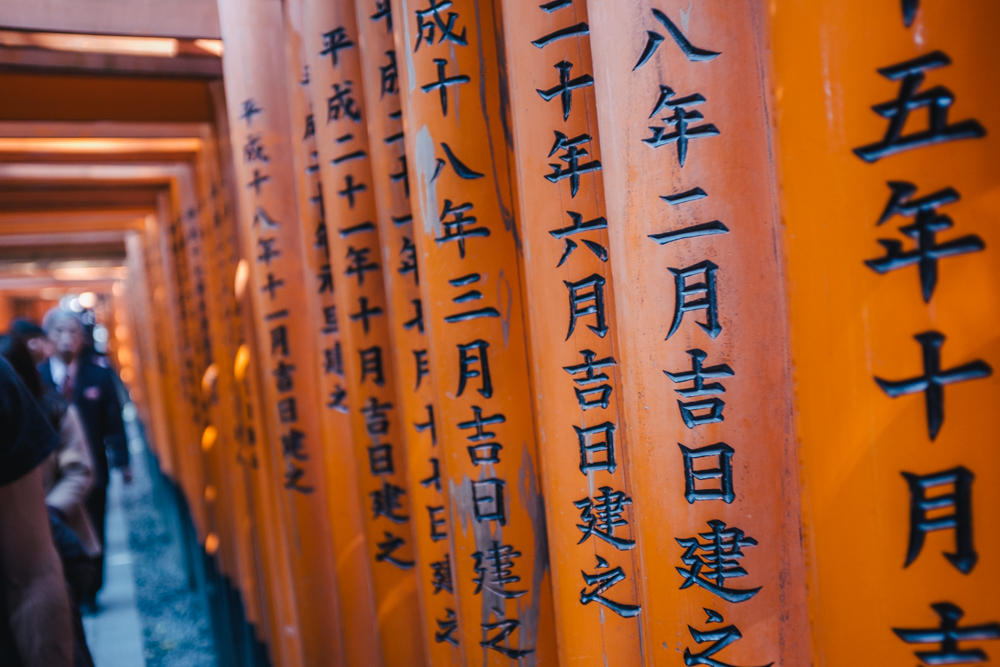 五年十月吉
八年二月吉日建之
二十年六月吉日建之
成十八年三月吉日建之
平成二十一年十月十七日建之
平成二十一年十月吉日建之
旦建之
平成十八年十一月吉日建之